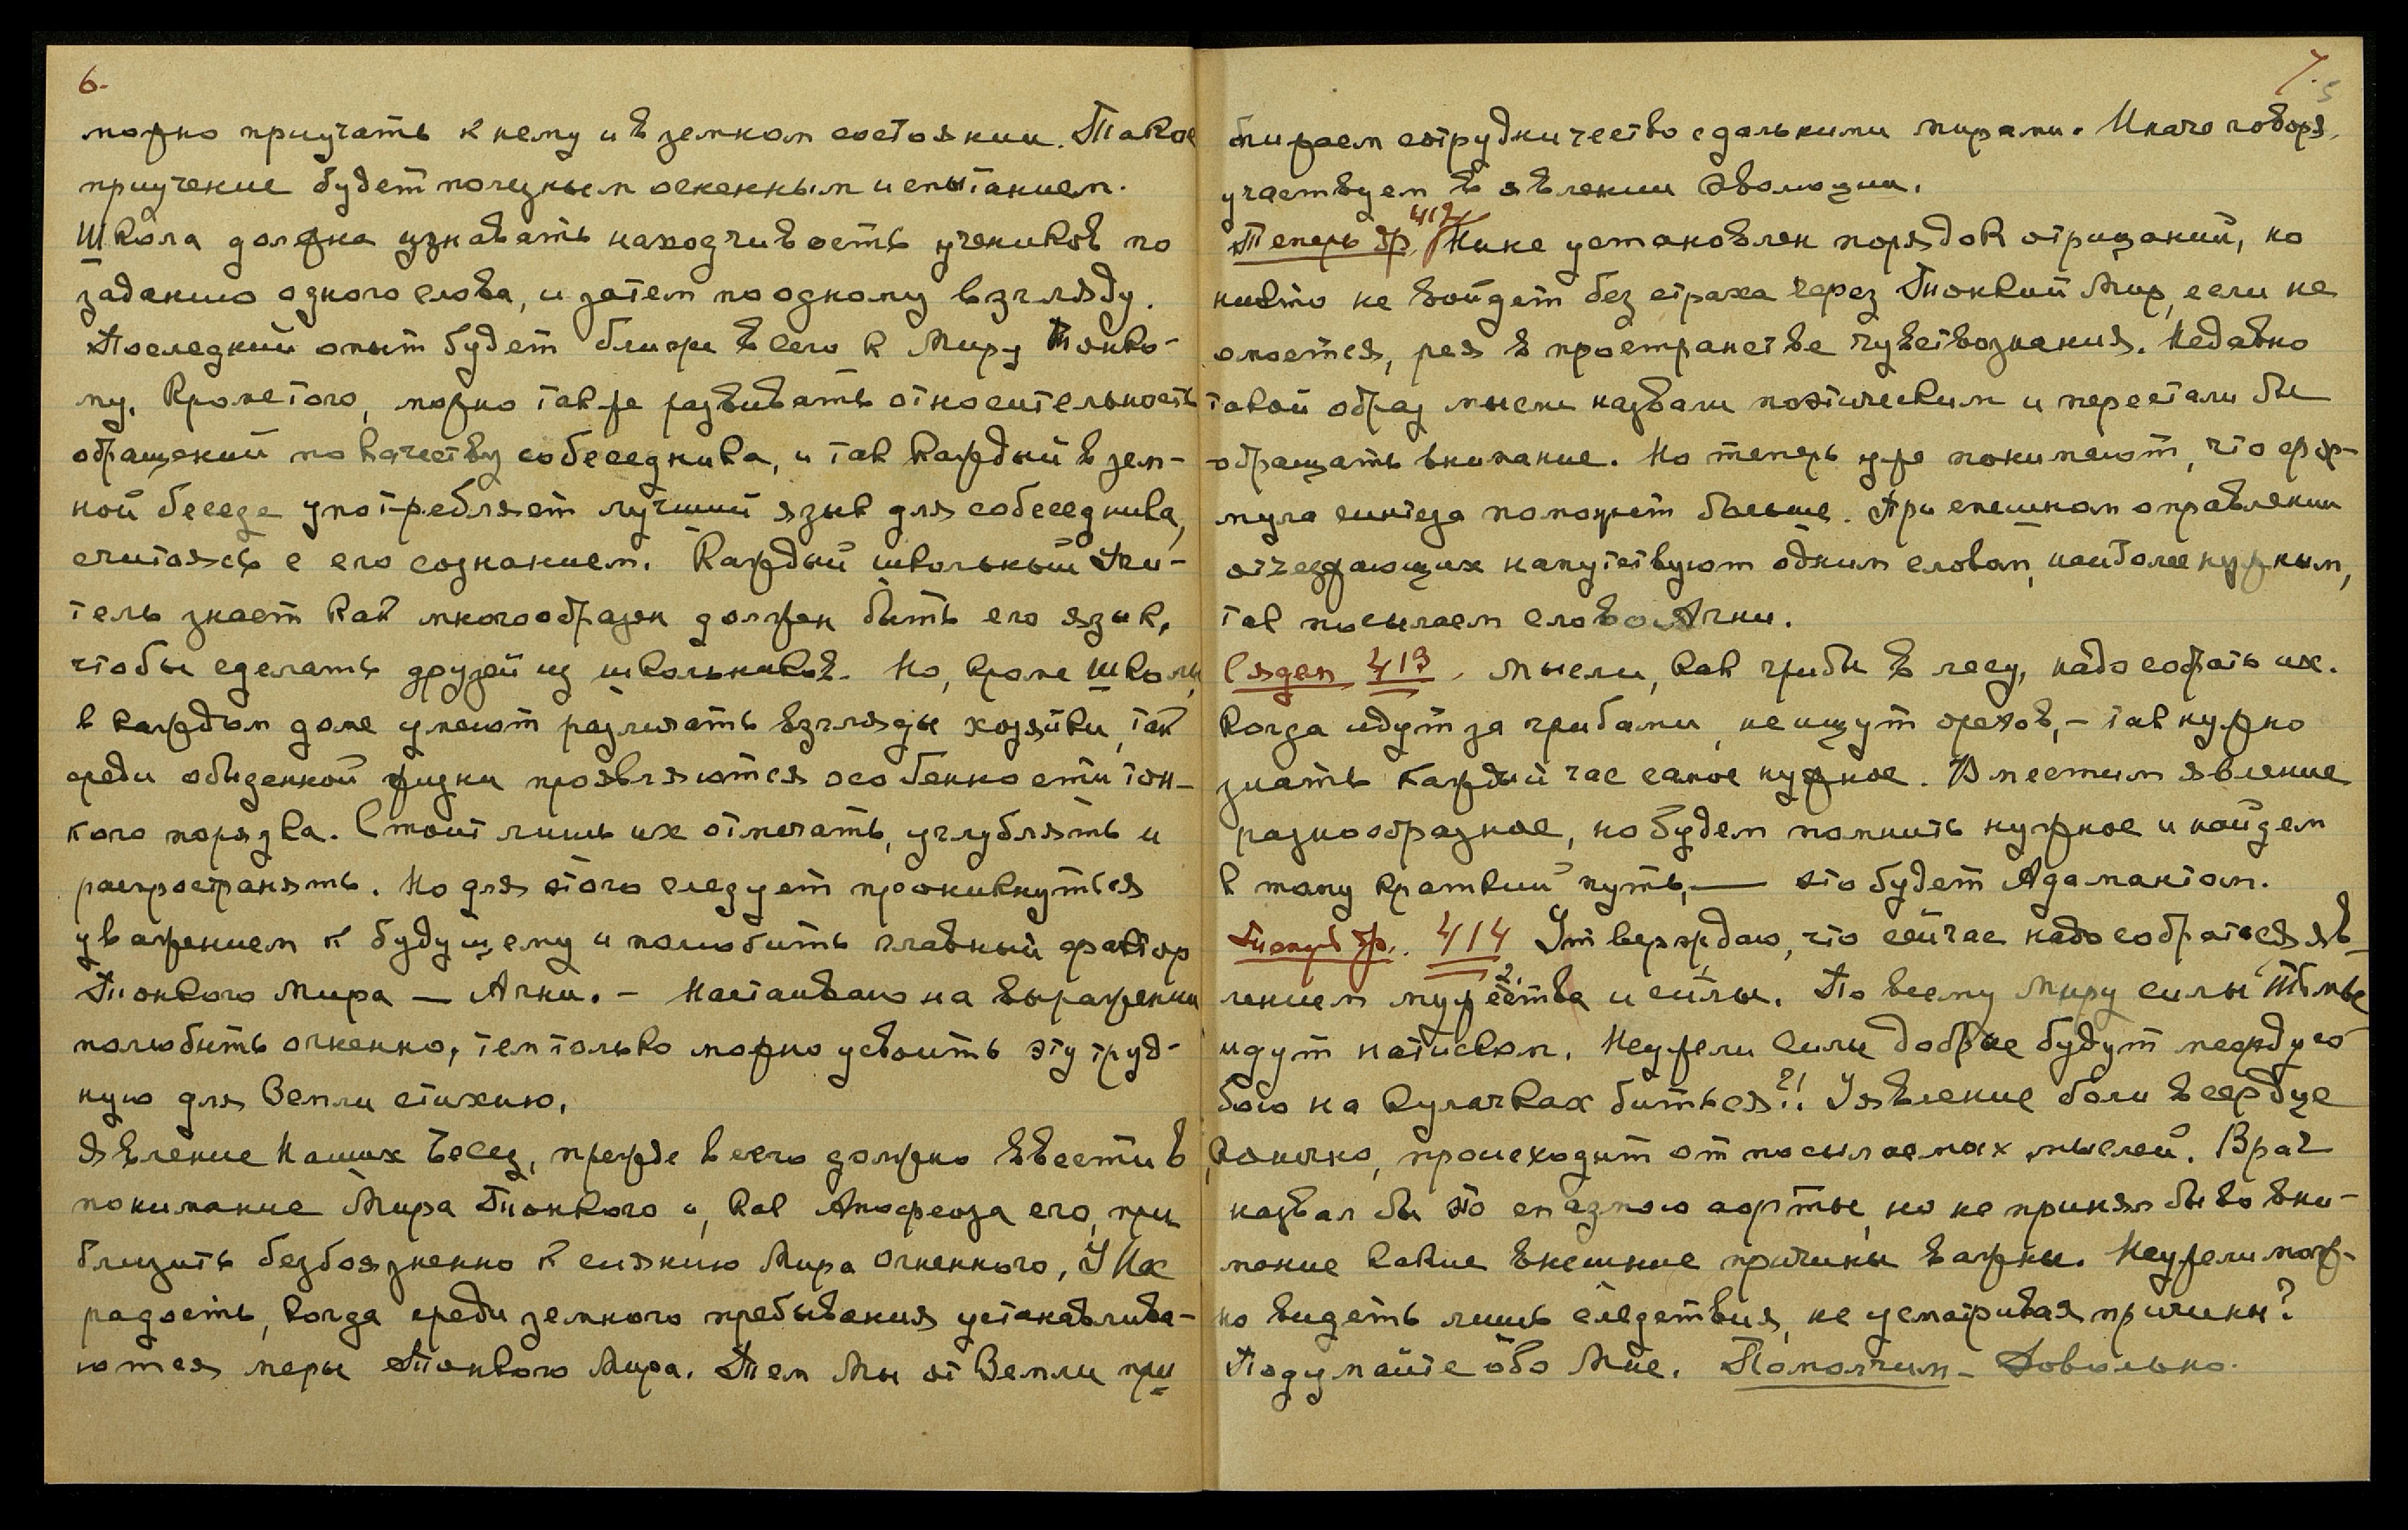 6.
можно приучать к нему и в земном состоянии. Такое
приучение будет полезным огненным испытанием.
Школа должна узнавать находчивость учеников по
заданию одного слова, и затем по одному взгляду.
Последний опыт будет ближе всего к Миру Тонко-
му. Кроме того, можно также развивать относительность
обращений по качеству собеседника, и так каждый в зем-
ной беседе употребляет лучший язык для собеседника,
считаясь с его сознанием. Каждый школьный Учи-
тель знает как многообразен должен быть его язык,
чтобы сделать друзей из школьников. Но, кроме школы,
в каждом доме умеют различать взгляды хозяйки, так
среди обыденной жизни проявляются особенности тон-
кого порядка. Стоит лишь их отмечать, углублять и
распространять. Но для этого следует проникнуться
уважением к будущему и полюбить главный фактор
Тонкого Мира — Агни. – Настаиваю на выражении
полюбить огненно, тем только можно усвоить эту труд-
ную для Земли стихию.
Явление Наших Бесед, прежде всего должно ввести в
понимание Мира Тонкого и, как Апофеоза его, при
близить безбоязненно к сиянию Мира Огненного, У Нас
радость, когда среди земного пребывания устанавлива-
ются меры Тонкого Мира. Тем Мы от Земли при
7.
5
ближаем сотрудничество с дальними мирами. Иначе говоря,
участвуем в явлении Эволюции.
Теперь др. 412 Ныне установлен порядок отрицаний, но
никто не войдет без страха через Тонкий Мир, если не
омоется, рея в пространстве чувствознания. Недавно
такой образ мысли назвали поэтическим и перестали бы
обращать внимание. Но теперь уже понимают, что фор-
мула синтеза поможет больше. При спешном оправлении
отъезжающих напутствуют одним словом, наиболее нужным,
так посылаем слово Агни.
Сядем 413. Мысли, как грибы в лесу, надо собрать их.
Когда идут за грибами, не ищут орехов, – так нужно
знать каждый час самое нужное. Вместим явление
разнообразное, но будем помнить нужное и найдем
к тому краткий путь, — это будет Адамантом.
Теперь др. 414 Утверждаю, что сейчас надо собраться яв-
лением мужества и силы. По всему Миру силы Тьмы
идут натиском. Неужели Силы Добрые будут между со
бою на кулачках биться?!. Уявление боли в сердце
конечно, происходит от посылаемых мыслей. Врач
назвал бы это спазмою аорты, но не принял бы во вни-
мание какие внешние причины важны. Неужели мож-
но видеть лишь следствия, не усматривая причины?
Подумайте обо Мне. Помолчим – Довольно.